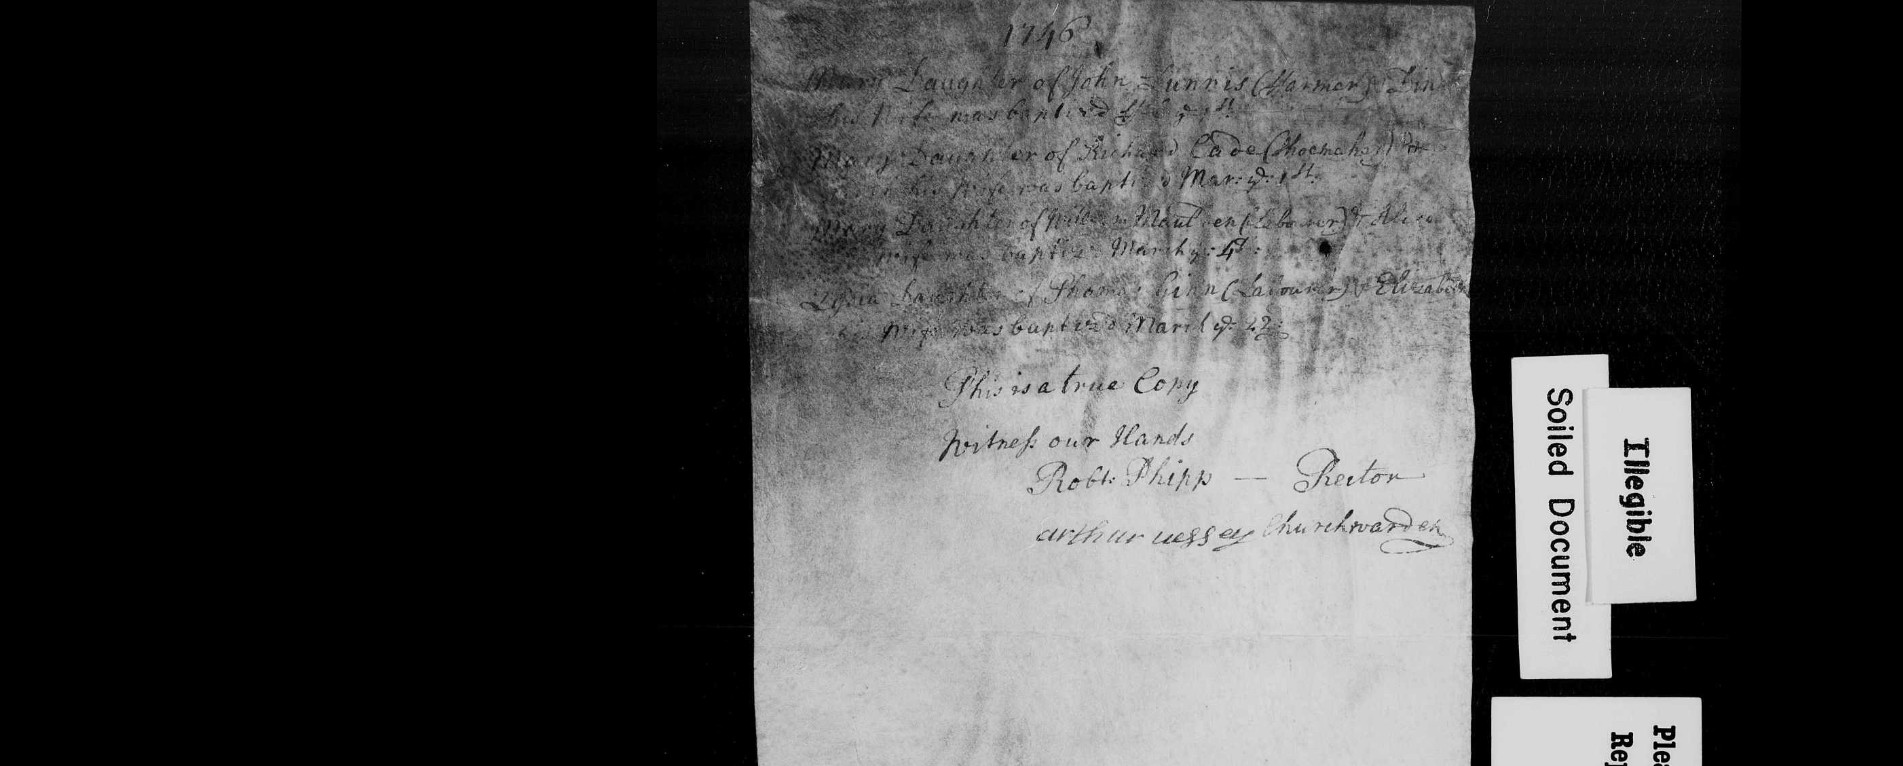 1746
Mary Daughter of John (Farmer) &
his Wife was baptized ye 1st
Mary Daughter of Richard Cade (Shoemaker) &
his Wife was baptizd Mar: ye: 1st:
Mary Daughter of William (Labourer) & Alice
wife was baptizd March ye: 4th:
Lydia Daughter of Thomas Ginn (Labourer) & Elizabeth
his Wife was baptizd March ye: 22:
This is a true Copy
Witness our Hands
Robt: Phipp — Rector
arthur uessey Churchwarden
Soiled Document
Illegible